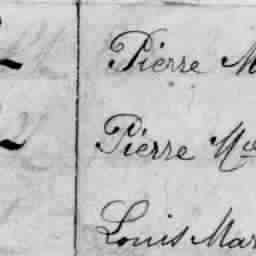 Pierre M
Pierre Mc
Louis Mar